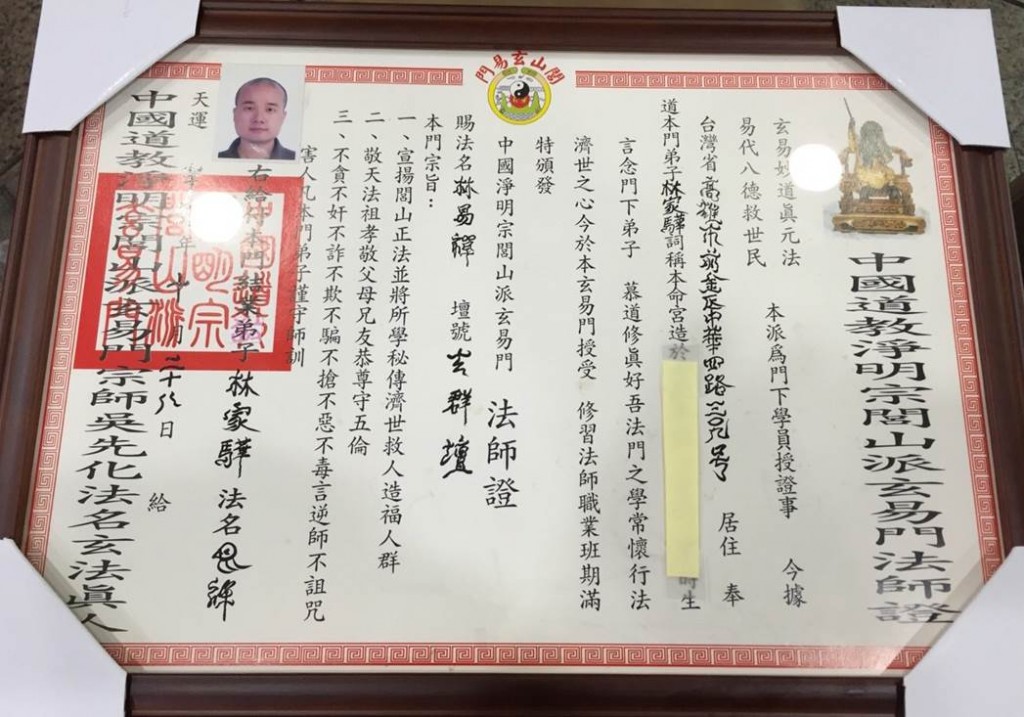 閭山玄易門
中國道教淨明宗閭山派玄易門法師證
玄易妙道眞元法 本派爲門下學員授證事 今據
易代八德救世民
台灣省高雄市前金區中華四路 號 居住 奉
道本門弟子林家驊詞稱本命宮造於 時生
言念門下弟子 慕道修眞好吾法門之學常懷行法
濟世之心今於本玄易門授受 修習法師職業班期滿
特頒發
中國淨明宗閭山派玄易門 法師證
賜法名林易 壇號玄群壇
本門宗旨：
一、宣揚閭山正法並將所學秘傳濟世救人造福人群
二、敬天法祖孝敬父母兄友恭尊守五倫
三、不貪不奸不詐不欺不騙不搶不惡不毒言逆師不詛咒
害人凡本門弟子謹守師訓
右給付本門結業弟子林家驊 法名易
天運 年 月二十 日 給
中國道教淨明宗閭山派玄易門宗師吳先化法名玄法眞人